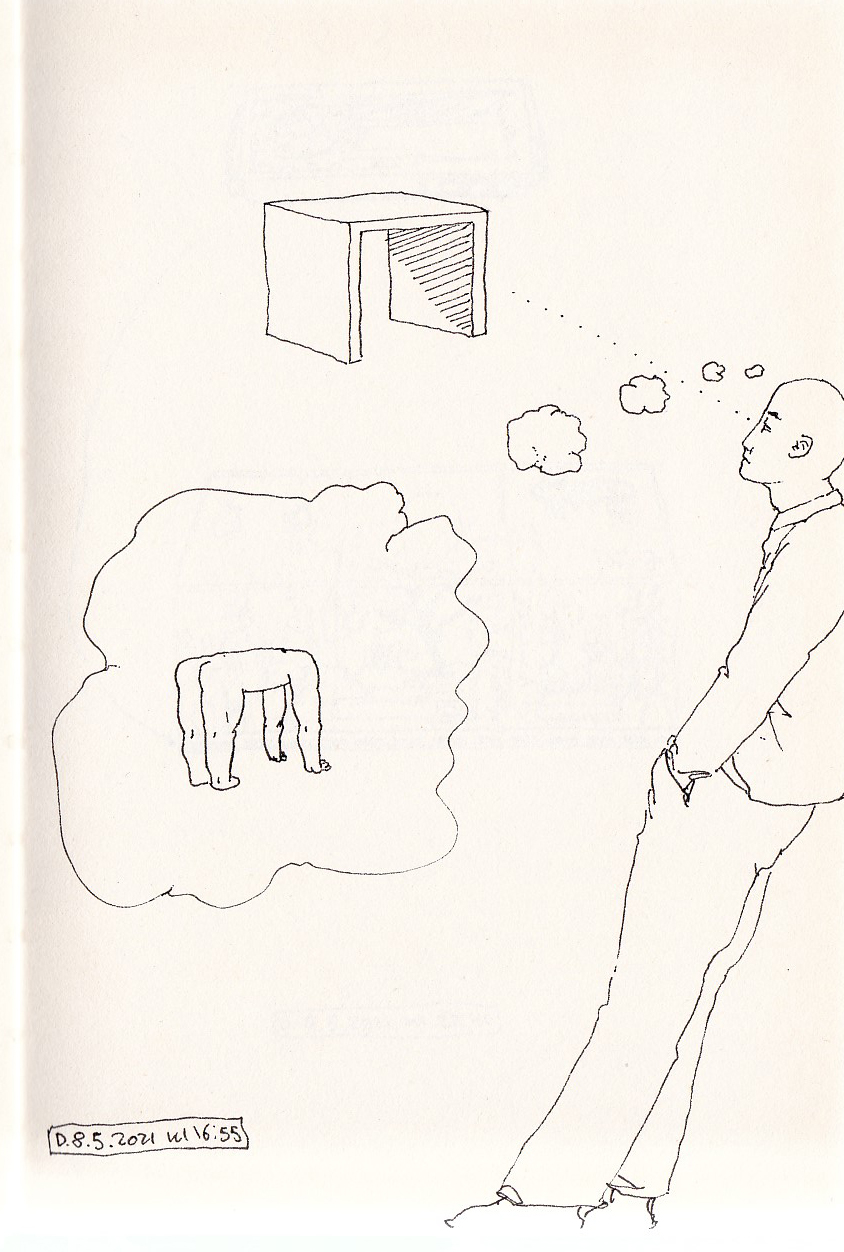 D.8.5.2021 kl 16:55